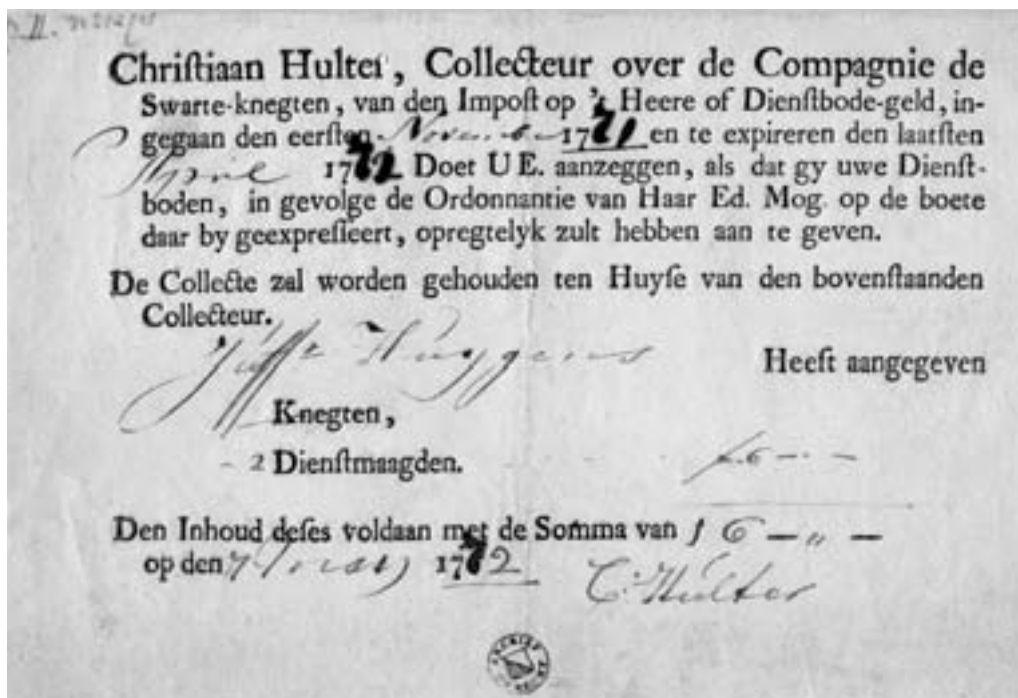 Chriſtiaan Hulter, Collecteur over de Compagnie de
Swarte-knegten, van den Impoſt op 't Heere of Dienſtbode-geld, in-
gegaan den eerſten November 1771 en te expireren den laatſten
April 1772 Doet U E. aanzeggen, als dat gy uwe Dienſt-
boden, in gevolge de Ordonnantie van Haar Ed. Mog. op de boete
daar by geexpreſſeert, opregtelyk zult hebben aan te geven.
De Collecte zal worden gehouden ten Huyſe van den bovenſtaanden
Collecteur.
Juffr Huygens Heeft aangegeven
Knegten,
- 2 Dienſtmaagden. f 6 - - -
Den Inhoud deſes voldaan met de Somma van f 6 - „ -
op den 7 1772
C. Hulter